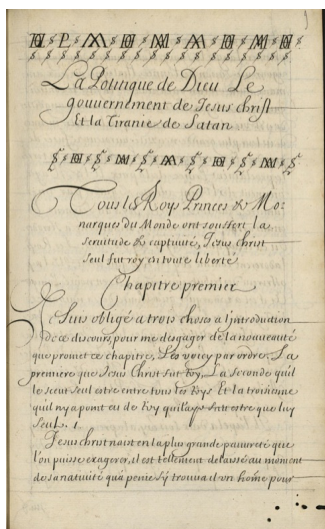 La Politique de Dieu Le
gouuernement de Jesus christ
Et la Tiranie de Satan
Tous les Roys Princes & Mo-
narques du Monde ont souffert la
seruitude & captiuité, Jesus christ
seul fut roy en toute liberté
Chapitre premier
Je Suis obligé a trois choses a l'introduction
de ce discours, pour me desgager de la nouueauté
que promet ce chapitre, Les voicy par ordre. La
premiere que Jesus Christ fut Roy, La seconde qu'il
le sceut seul estre entre tous les Roys Et la troisieme
qu'il ny a point eu de Roy qui l'aye sceu estre que luy
seul.
Jesus christ naist en la plus grande pauureté que
l'on puisse exagerer, il est tellement delaissé au moment
de sa natiuité qu'a peine s'y trouua il vn home pour